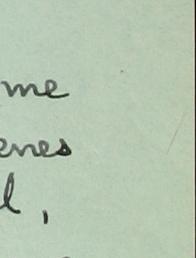 me
enes
l,